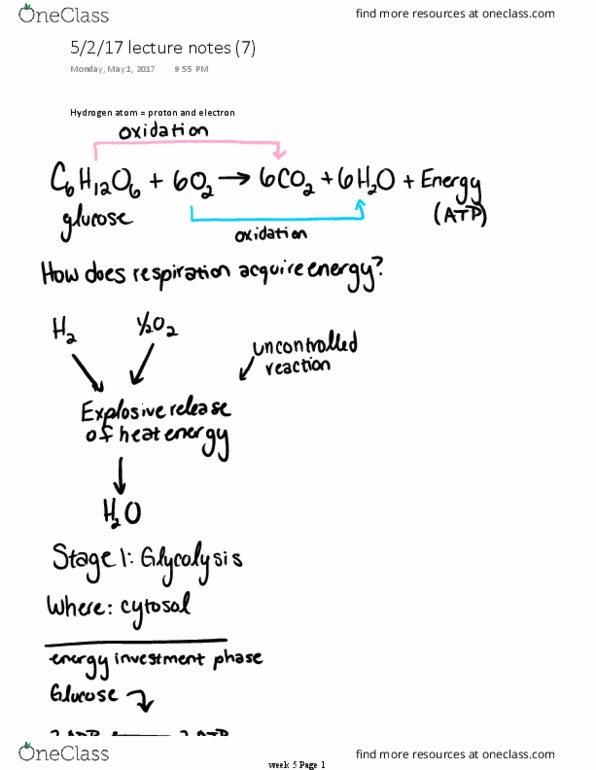 OneClass find more resources at oneclass.com
5/2/17 lecture notes (7)
Monday, May 1, 2017 9:55 PM
Hydrogen atom = proton and electron
oxidation
C6H12O6 + 6O2 → 6CO2 + 6H2O + Energy
glucose (ATP)
oxidation
How does respiration acquire energy?
H2 ½O2
uncontrolled
reaction
Explosive release
of heat energy
H2O
Stage 1: Glycolysis
Where: cytosol
energy investment phase
Glucose
OneClass find more resources at oneclass.com
week 5 Page 1